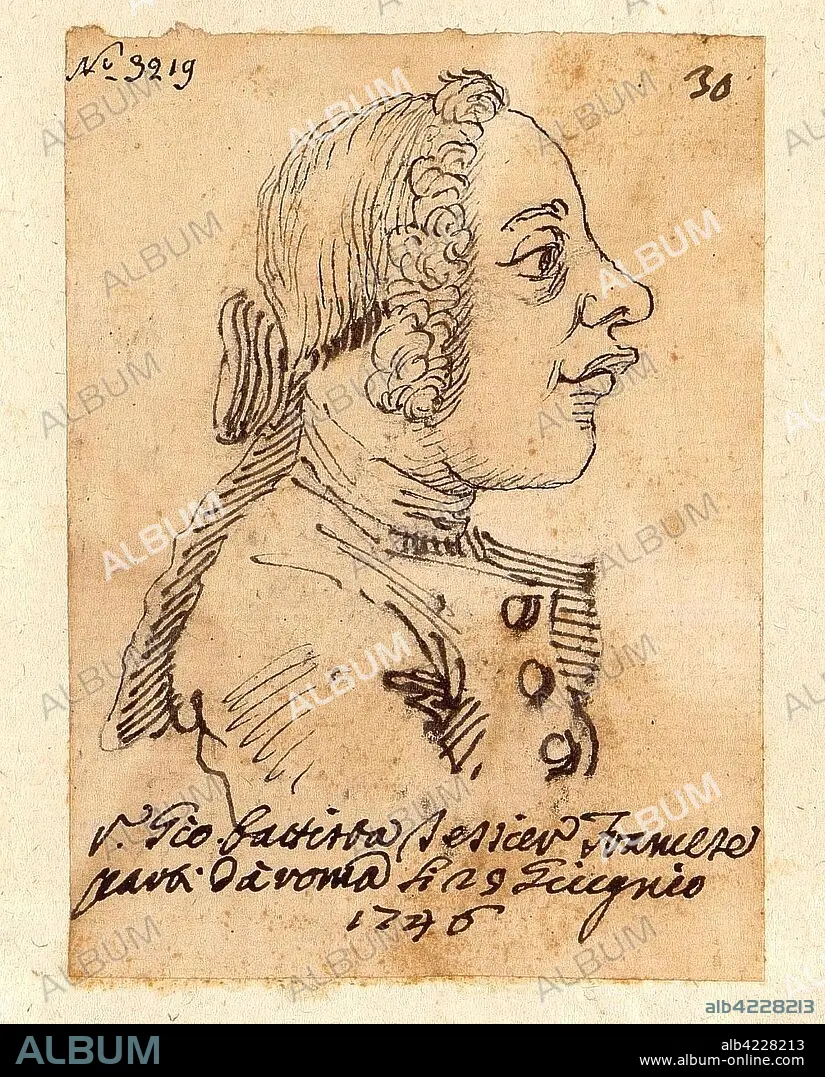 N.º 3219
30
S.r Gio. battista Tessier Franscese
parti. Da roma li 29 Giugnio
1746
alb4228213
ALBUM
alb4228213
www.album-online.com